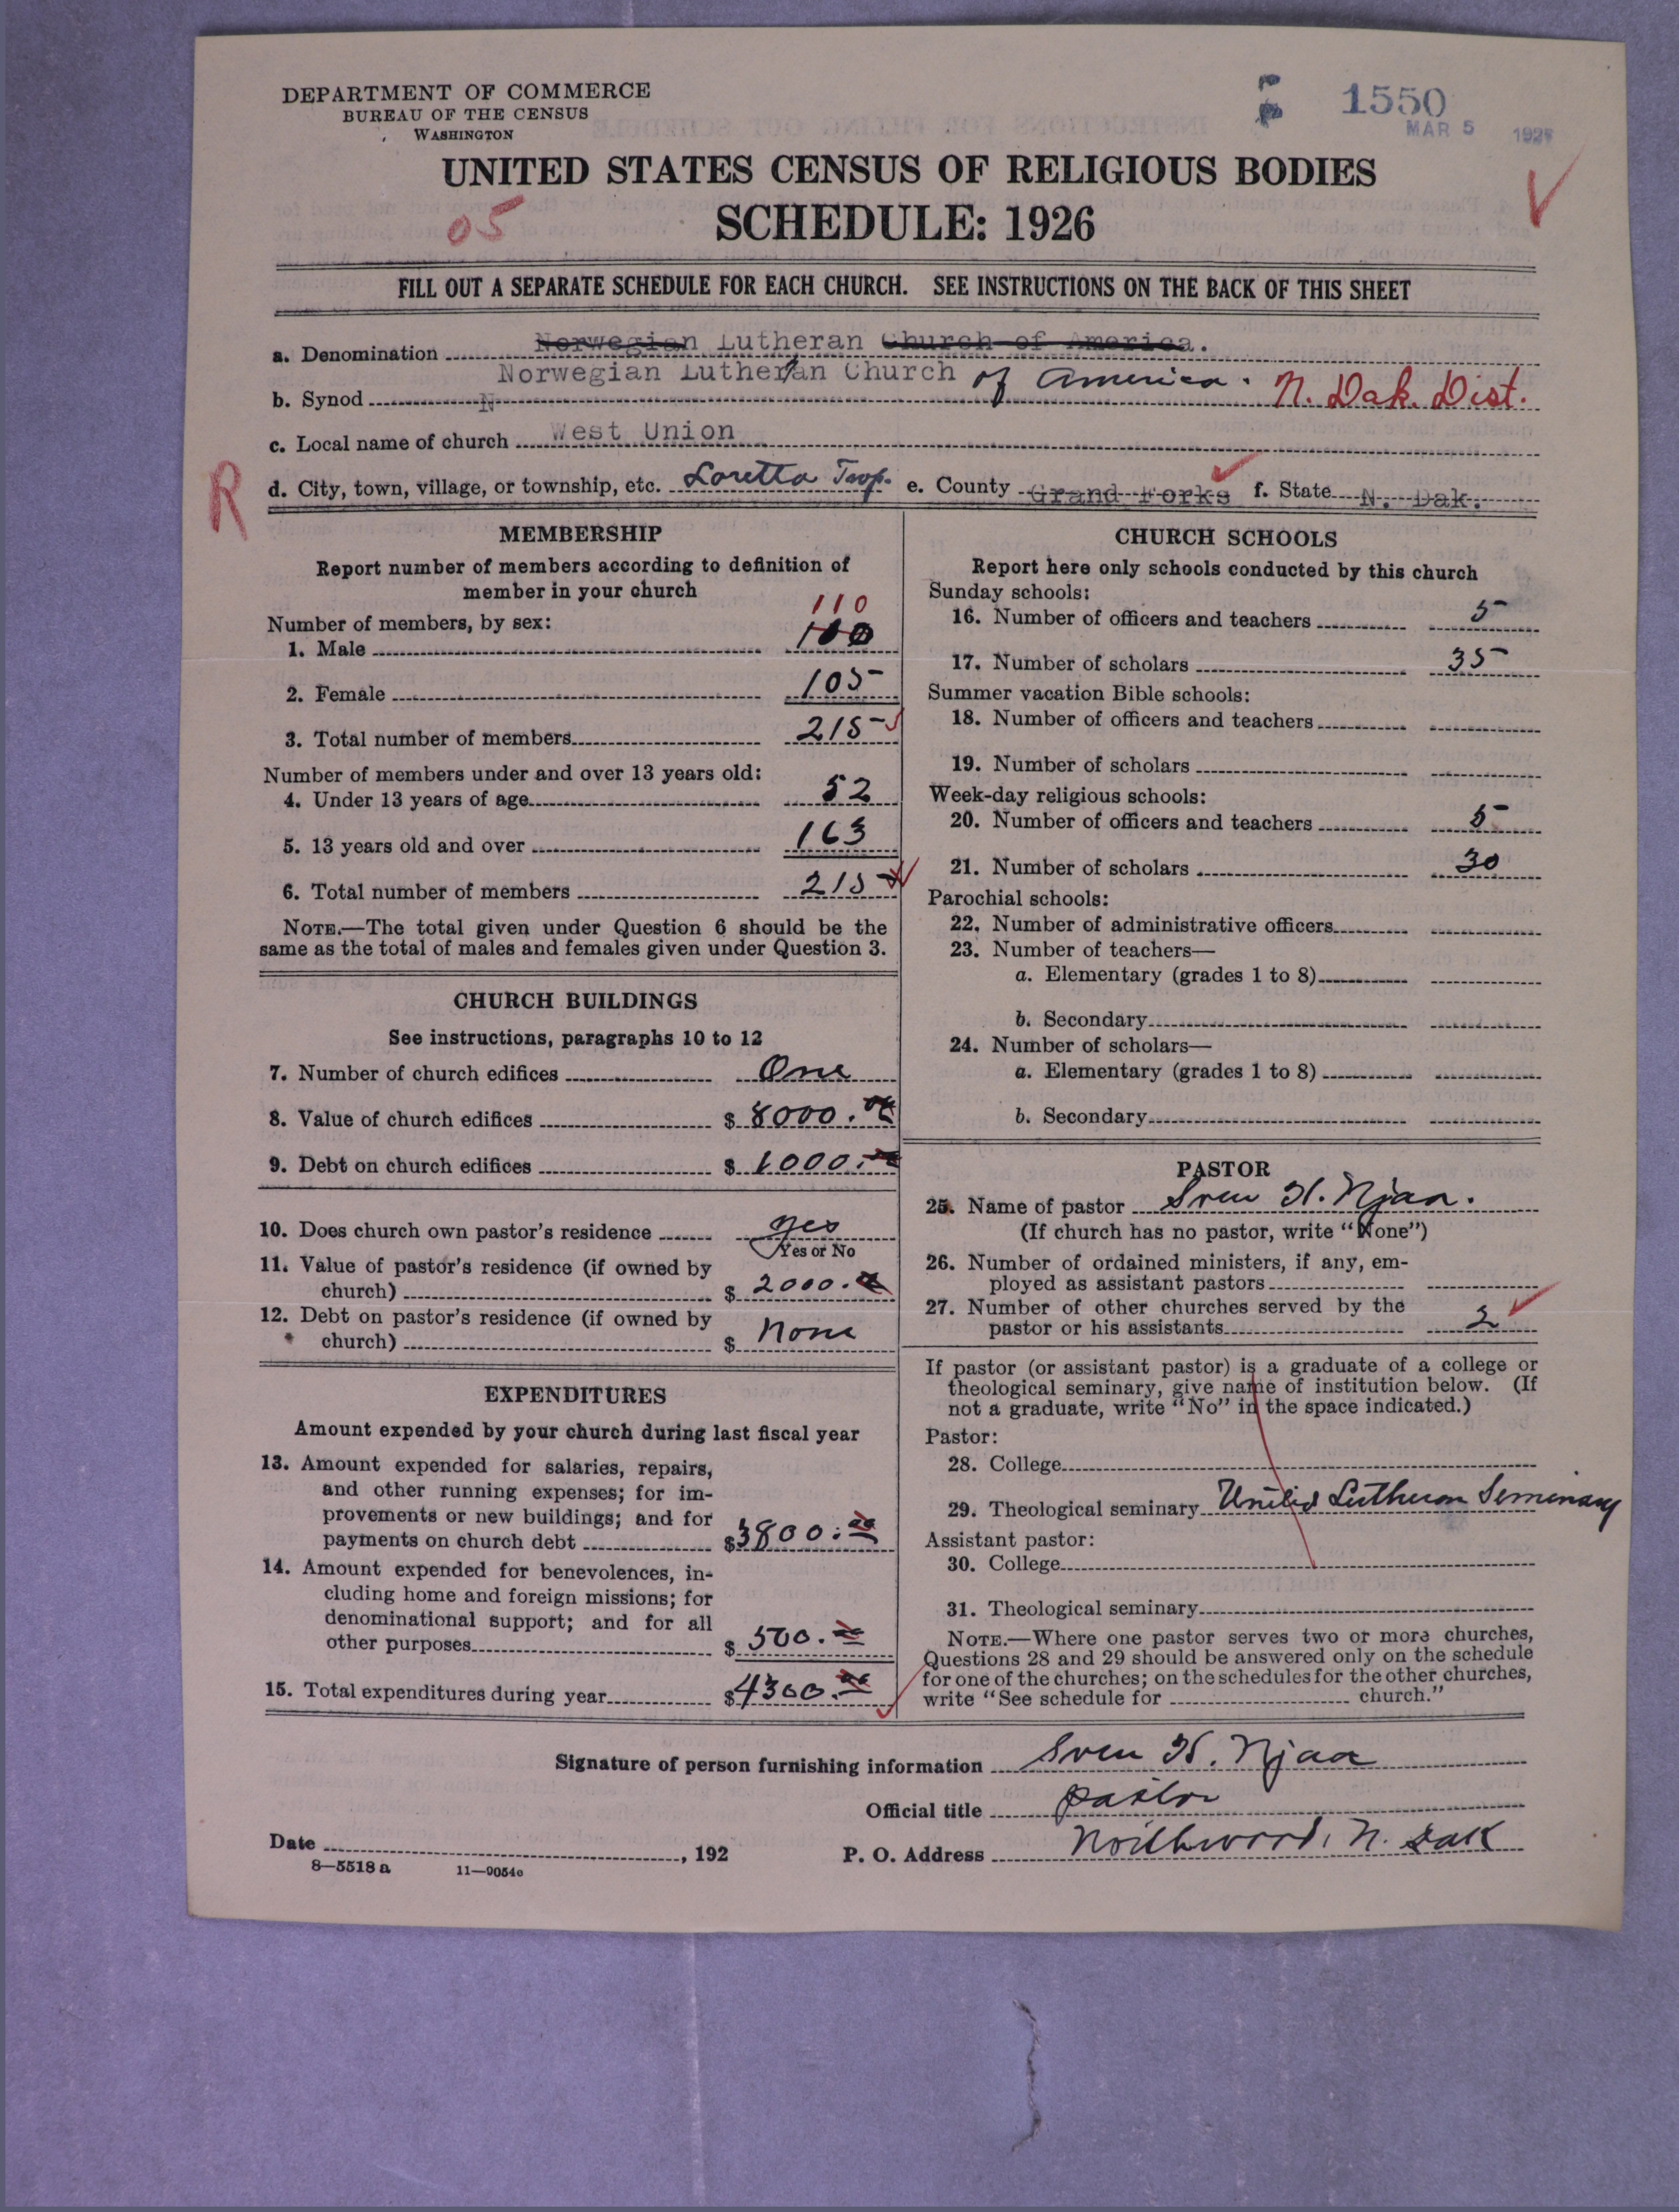 DEPARTMENT OF COMMERCE
BUREAU OF THE CENSUS
WASHINGTON
1550
MAR 5 192
UNITED STATES CENSUS OF RELIGIOUS BODIES
SCHEDULE: 1926
05
FILL OUT A SEPARATE SCHEDULE FOR EACH CHURCH. SEE INSTRUCTIONS ON THE BACK OF THIS SHEET
a. Denomination Norwegian Lutheran Church of America.
b. Synod Norwegian Lutheran Church of America. N. Dak. Dist.
c. Local name of church West Union
R
d. City, town, village, or township, etc. Loretta Twp. e. County Grand Forks f. State N. Dak.
MEMBERSHIP
Report number of members according to definition of
member in your church
Number of members, by sex:
110
1. Male 100
2. Female 105
3. Total number of members 215
Number of members under and over 13 years old:
4. Under 13 years of age 52
5. 13 years old and over 163
6. Total number of members 215
NOTE.—The total given under Question 6 should be the
same as the total of males and females given under Question 3.
CHURCH BUILDINGS
See instructions, paragraphs 10 to 12
7. Number of church edifices One
8. Value of church edifices $ 8000.
9. Debt on church edifices $ 1000.
10. Does church own pastor's residence yes
Yes or No
11. Value of pastor's residence (if owned by
church) $ 2000.
12. Debt on pastor's residence (if owned by
church) $ None
EXPENDITURES
Amount expended by your church during last fiscal year
13. Amount expended for salaries, repairs,
and other running expenses; for im-
provements or new buildings; and for
payments on church debt $3800.
14. Amount expended for benevolences, in-
cluding home and foreign missions; for
denominational support; and for all
other purposes $ 500.
15. Total expenditures during year $4300.
CHURCH SCHOOLS
Report here only schools conducted by this church
Sunday schools:
16. Number of officers and teachers 5
17. Number of scholars 35
Summer vacation Bible schools:
18. Number of officers and teachers
19. Number of scholars
Week-day religious schools:
20. Number of officers and teachers 5
21. Number of scholars 30
Parochial schools:
22. Number of administrative officers
23. Number of teachers—
a. Elementary (grades 1 to 8)
b. Secondary
24. Number of scholars—
a. Elementary (grades 1 to 8)
b. Secondary
PASTOR
25. Name of pastor Sven H. Njaa.
(If church has no pastor, write "None")
26. Number of ordained ministers, if any, em-
ployed as assistant pastors
27. Number of other churches served by the
pastor or his assistants 2
If pastor (or assistant pastor) is a graduate of a college or
theological seminary, give name of institution below. (If
not a graduate, write "No" in the space indicated.)
Pastor:
28. College
29. Theological seminary United Lutheran Seminary
Assistant pastor:
30. College
31. Theological seminary
NOTE.—Where one pastor serves two or more churches,
Questions 28 and 29 should be answered only on the schedule
for one of the churches; on the schedules for the other churches,
write "See schedule for church."
Signature of person furnishing information Sven H. Njaa
Official title pastor
Date , 192 P. O. Address Northwood, N. Dak
8—5518 a 11—9054c